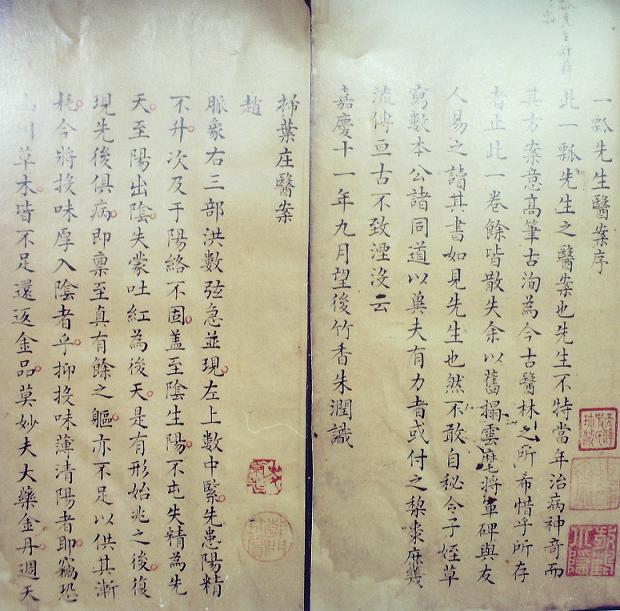 一瓢先生醫案序
此一瓢先生之醫案也先生不特當年治病神奇而
其方案意高筆古洵為今古醫林之所希惜乎所存
者止此一卷餘皆散失余以舊搨雲麾將軍碑與友
人易之讀其書如見先生也然不敢自秘令子姪草
寫數本公諸同道以冀夫有力者或付之棃棗庶幾
流傳亘古不致湮沒云
嘉慶十一年九月望後竹香朱潤識
掃葉庄醫案
趙
脈象右三部洪數弦急並現左上數中緊先患陽精
不升次及于陽絡不固蓋至陰生陽不屯失精為先
天至陽出陰失蒙吐紅為後天是有形始兆之後復
現先後俱病即禀至真有餘之軀亦不足以供其漸
耗今將投味厚入陰者乎抑投味薄清陽者耶竊恐
川草木皆不足還返金品莫妙夫大藥金丹週天